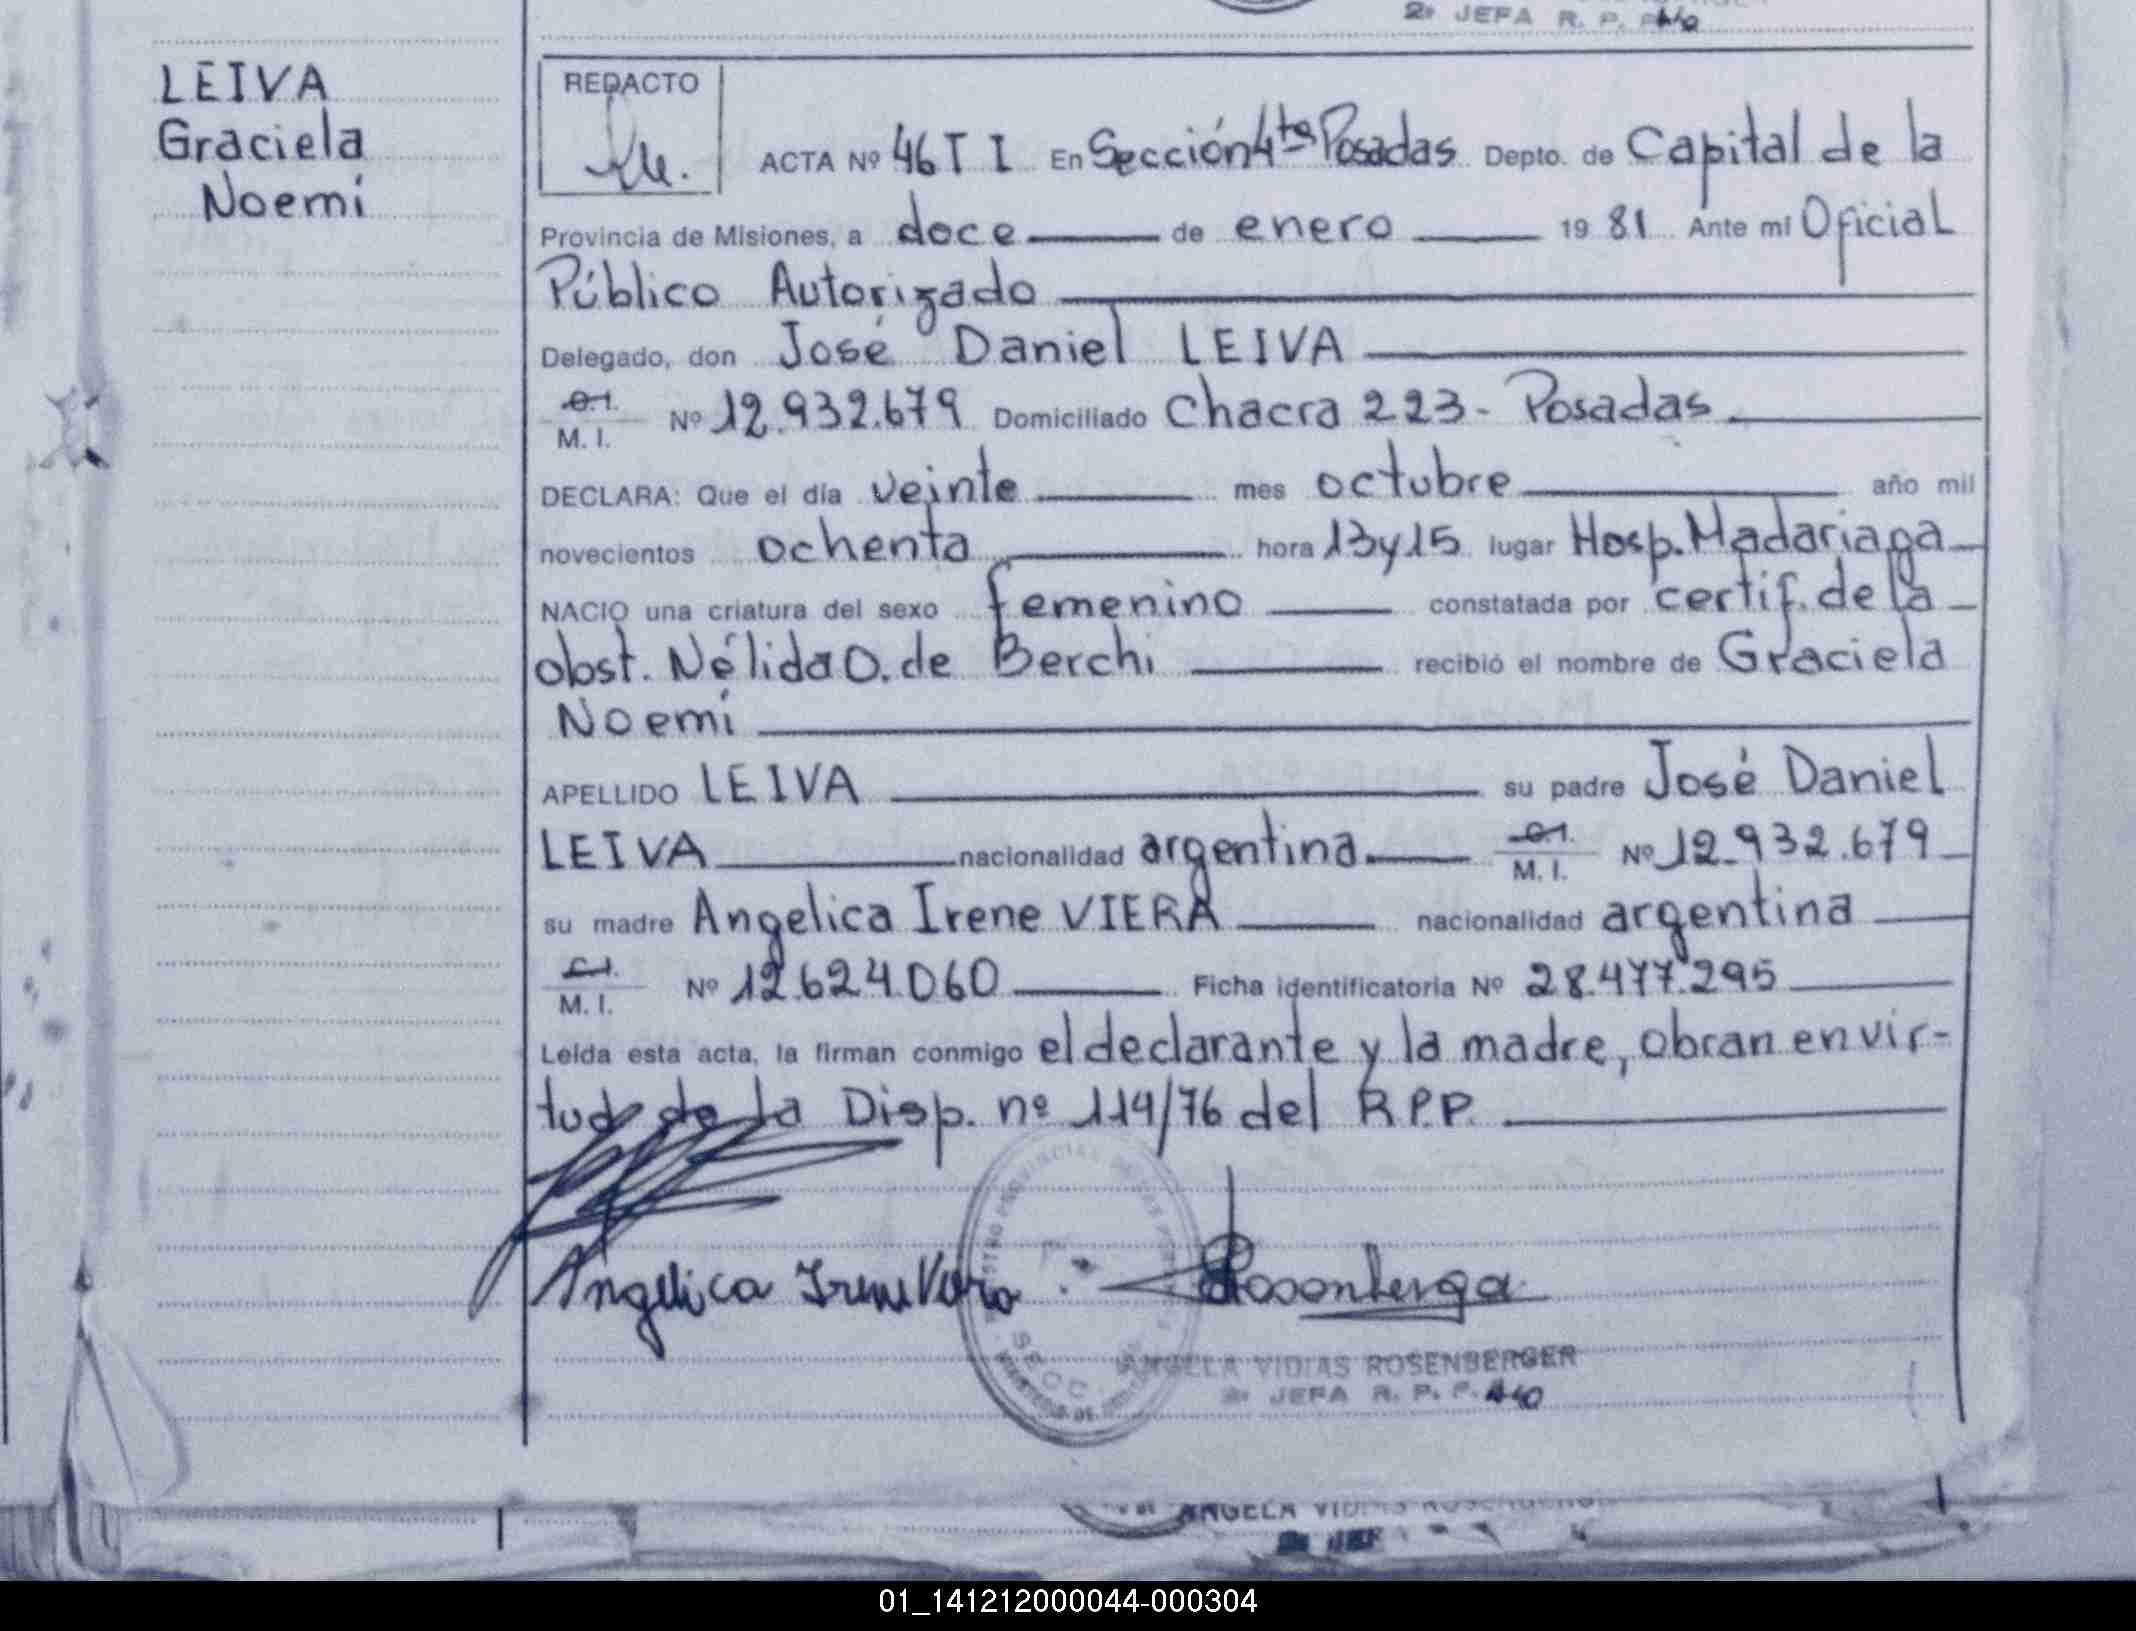 2º JEFA R. P. P.
LEIVA
Graciela
Noemí
REDACTO
ACTA Nº 46 T I En Sección 4ta Posadas Depto. de Capital de la
Provincia de Misiones, a doce de enero 1981 Ante mí Oficial
Público Autorizado
Delegado, don José Daniel LEIVA
C.I.
M. I. Nº 12.932.679 Domiciliado Chacra 223 - Posadas
DECLARA: Que el día veinte mes octubre año mil
novecientos ochenta hora 13y15 lugar Hosp. Madariaga
NACIO una criatura del sexo femenino constatada por certif. de la
obst. Nélida O. de Berchi recibió el nombre de Graciela
Noemí
APELLIDO LEIVA su padre José Daniel
LEIVA nacionalidad argentina C.I.
M. I. Nº 12.932.679
su madre Angelica Irene VIERA nacionalidad argentina
C.I.
M. I. Nº 12.624.060 Ficha identificatoria Nº 28.477.295
Leída esta acta, la firman conmigo el declarante y la madre, obran en vir-
tud de la Disp. nº 114/76 del R.P.P.
Angelica Irene Viera
ANGELA VIDIAS ROSENBERGER
2º JEFA R. P. P.
ANGELA VIDIAS
01_141212000044-000304